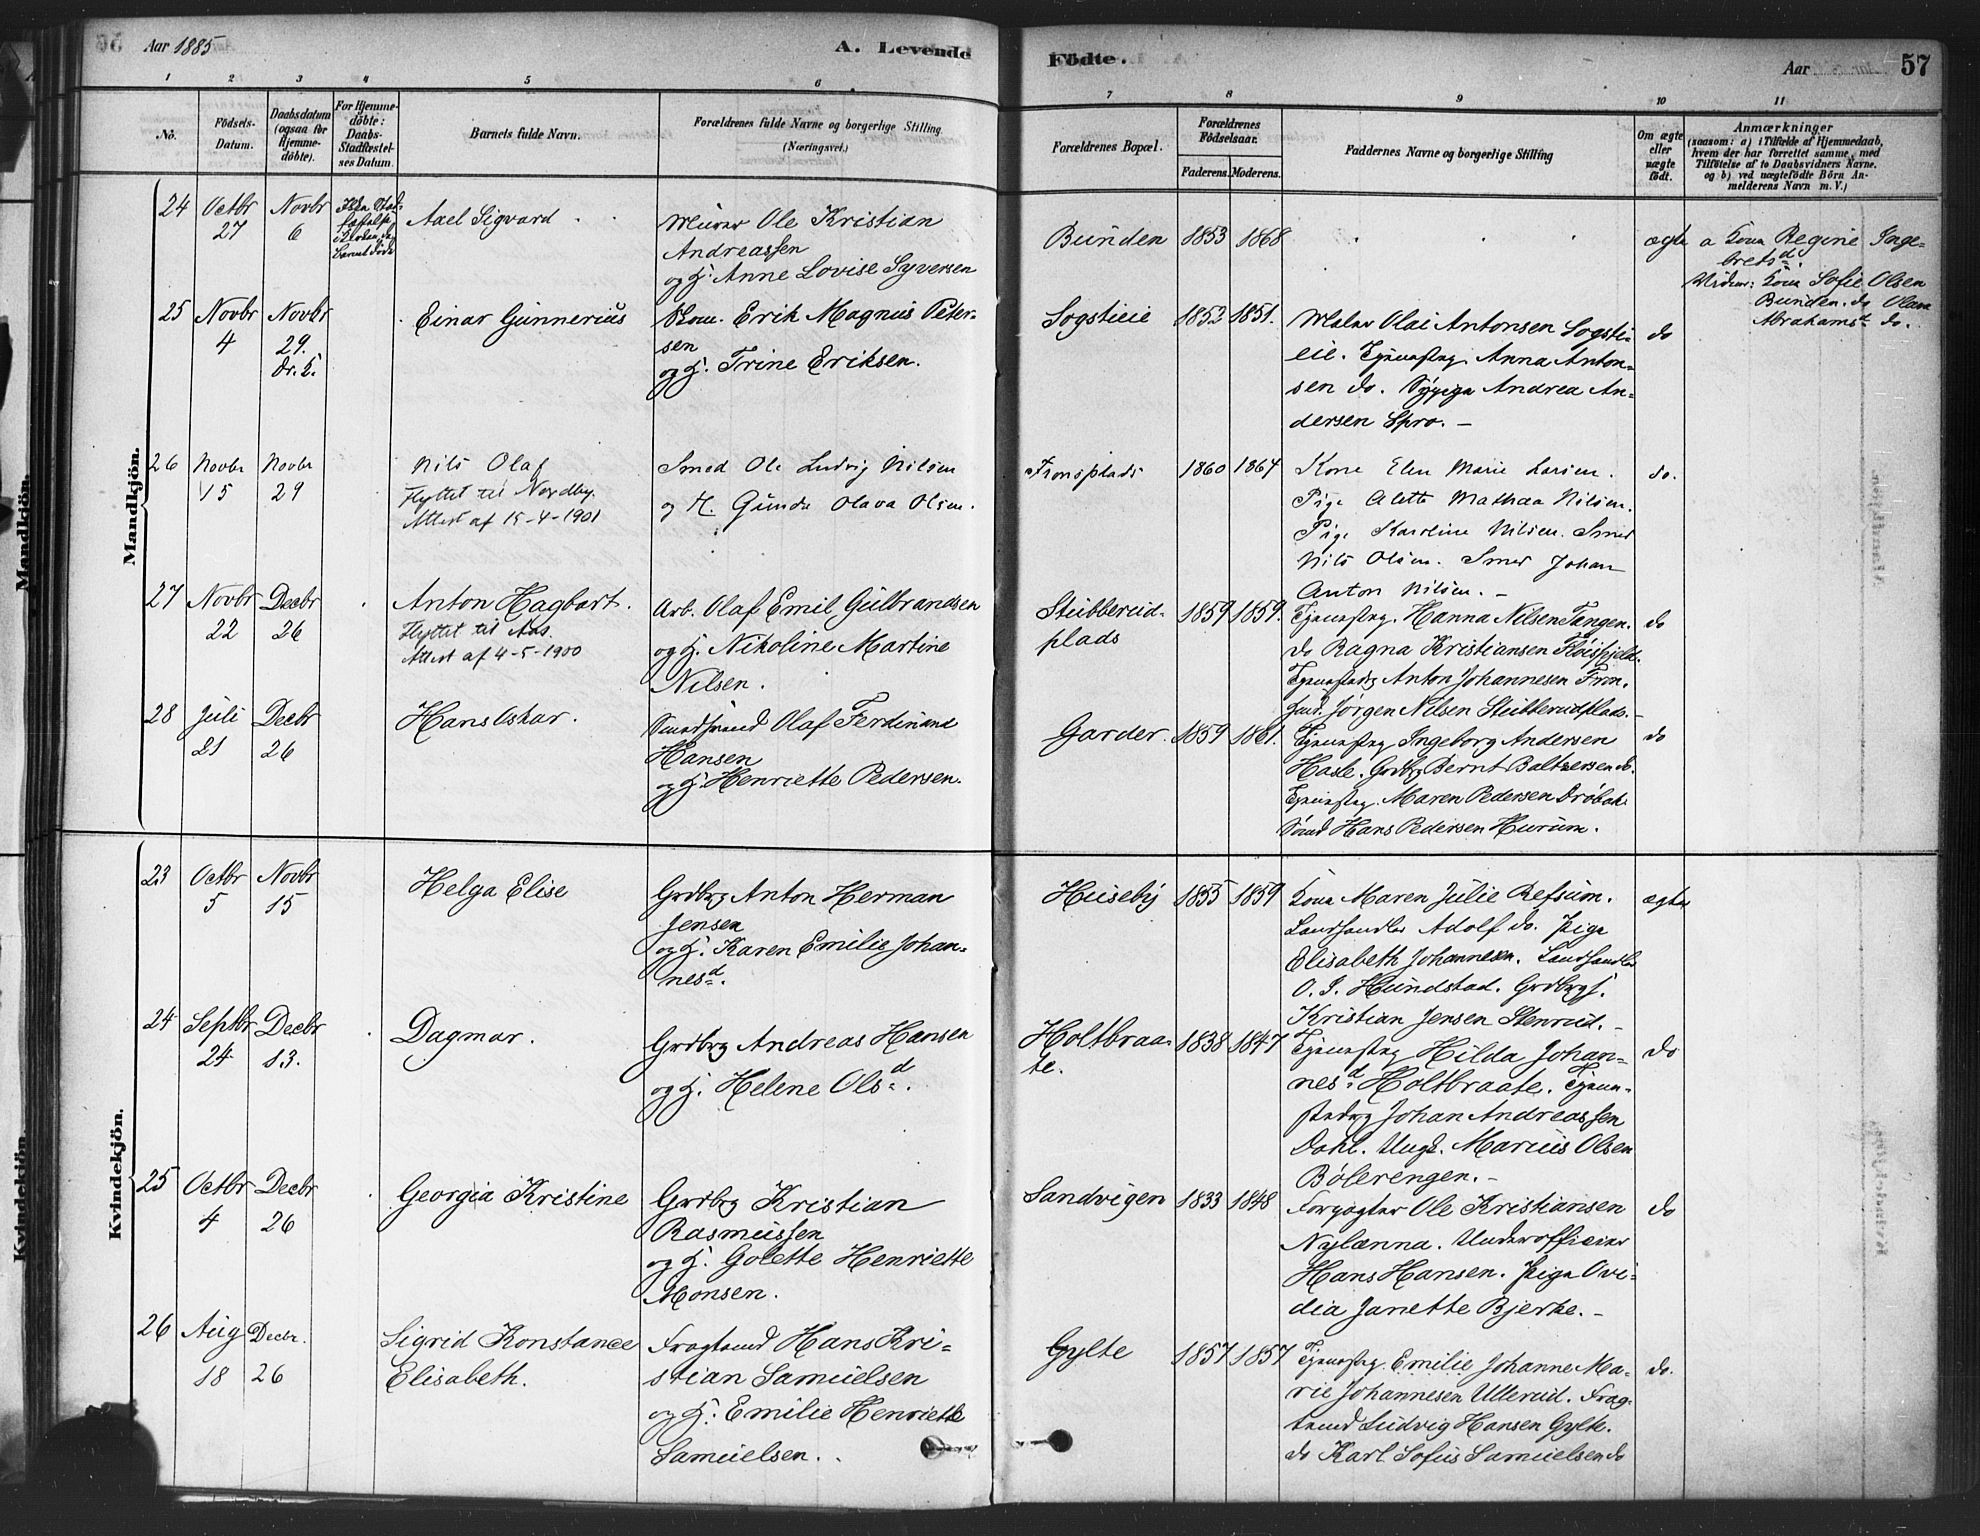 56 Aar 1885
A. Levende
Födte.
Aar
57
1 2 3 4 5 6 7 8 9 10 11
No.
Födsels-
Datum.
Daabsdatum
(ogsaa for
Hjemme-
döbte).
For Hjemme-
döbte:
Daabs-
Stadfæstel-
ses Datum.
Barnets fulde Navn.
Forældrenes fulde Navne og borgerlige Stilling
(Næringsvei.)
Forældrenes Bopæl.
Forældrenes
Födselsaar.
Faderens. Moderens.
Faddernes Navne og borgerlige Stilling
Om ægte
eller
uægte
födt.
Anmærkninger
(saasom: a) i Tilfælde af Hjemmedaab,
hvem der har forrettet samme, med
Tilföielse af to Daabsvidners Navne.
og b) ved uægtefödte Börn An-
melderens Navn m. V.)
Mandkjön.
24 Octbr 27 Novbr 6
Axel Sigvard
Murer Ole Kristian
Andreassen
og H. Anne Lovise Syversen
Bunden 1853 1868
ægte
a Kona Regine Inge-
bretsd.
Vidner: Kona Sofie Olsen
Bunden. do Olava
Abrahamsd. do.
25 Novbr 4 Novbr 29.
dr. k.
Einar Gunnerius
Skom. Erik Magnus Peter-
sen
og H. Trine Eriksen.
Sogstieie 1852 1851.
Maler Olai Antonsen Sogsti-
eie. Tjenestpg. Anna Anton-
sen do. Sypige Andrea An-
dersen Spro. –
do
26 Novbr 15 Novbr 29
Nils Olaf
Flyttet til Nordby.
Attest af 15-4-1901
Smed Ole Ludvig Nilsen
og H. Gunda Olava Olsen.
Fronsplads 1860 1864
Kone Elen Marie Larsen.
Pige Alette Mathea Nilsen.
Pige Karoline Nilsen. Smed
Nils Olsen. Smed Johan
Anton Nilsen. –
do.
27 Novbr 22 Decbr 26
Anton Hagbart.
Flyttet til Aas.
Attest af 4-5-1900
Arb. Olaf Emil Gulbrandsen
og H. Nikoline Martine
Nilsen.
Stubberud-
plads
1859 1859.
Tjenestpg. Hanna Nilsen Tangen.
do Ragna Kristiansen Fløispjeld.
Tjenestedrg Anton Johannesen Fron.
Jørgen Nilsen Stubberudplads. –
do
28 Juli 21 Decbr 26
Hans Oskar.
Smedsvend Olaf Ferdinand
Hansen
og H. Henriette Pedersen.
Garder. 1859 1861.
Tjenestpg Ingeborg Andersen
Hasle. Grdbrg Bernt Baltsersen do.
Tjenestpg. Maren Pedersen Drøbak.
Sømd Hans Pedersen Hurum.
do
Kvindekjön.
23 Octbr 5 Novbr 15
Helga Elise
Grdbrg Anton Herman
Jensen
og H. Karen Emilie Johan-
nesd.
Huseby 1855 1859
Kona Maren Julie Refsum.
Landhandler Adolf do. Pige
Elisabeth Johannesen. Landhandler
O. J. Hundstad. Grdbrgs.
Kristian Jensen Stenrud. –
ægte
24 Septbr 24 Decbr 13.
Dagmar.
Grdbrg Andreas Hansen
og H. Helene Olsd.
Holtbraa-
te.
1838 1847
Tjenestpg Hilda Johan-
nesd. Holtbraate. Tjene-
stedrg Johan Andreassen
Dahl. Ungk. Marius Olsen
Bölerengen. –
do
25 Octbr 4 Decbr 26
Georgia Kristine
Grdbrg Kristian
Rasmussen
og H. Golette Henriette
Monsen.
Sandvigen 1833 1848
Forpagter Ole Kristiansen
Nylænna. Underofficier
Hans Hansen. Pige Ovi-
dia Janette Bjerke. –
do
26 Aug 18 Decbr. 26
Sigrid Konstance
Elisabeth.
Fragtemd Hans Kri-
stian Samuelsen
og H. Emilie Henriette
Samuelsen.
Gylte 1857 1857
Tjenestpg. Emilie Johanne Ma-
rie Johannesen Ullerud. Frag-
temd Ludvig Hansen Gylte.
do Karl Sofus Samuelsen do
do.